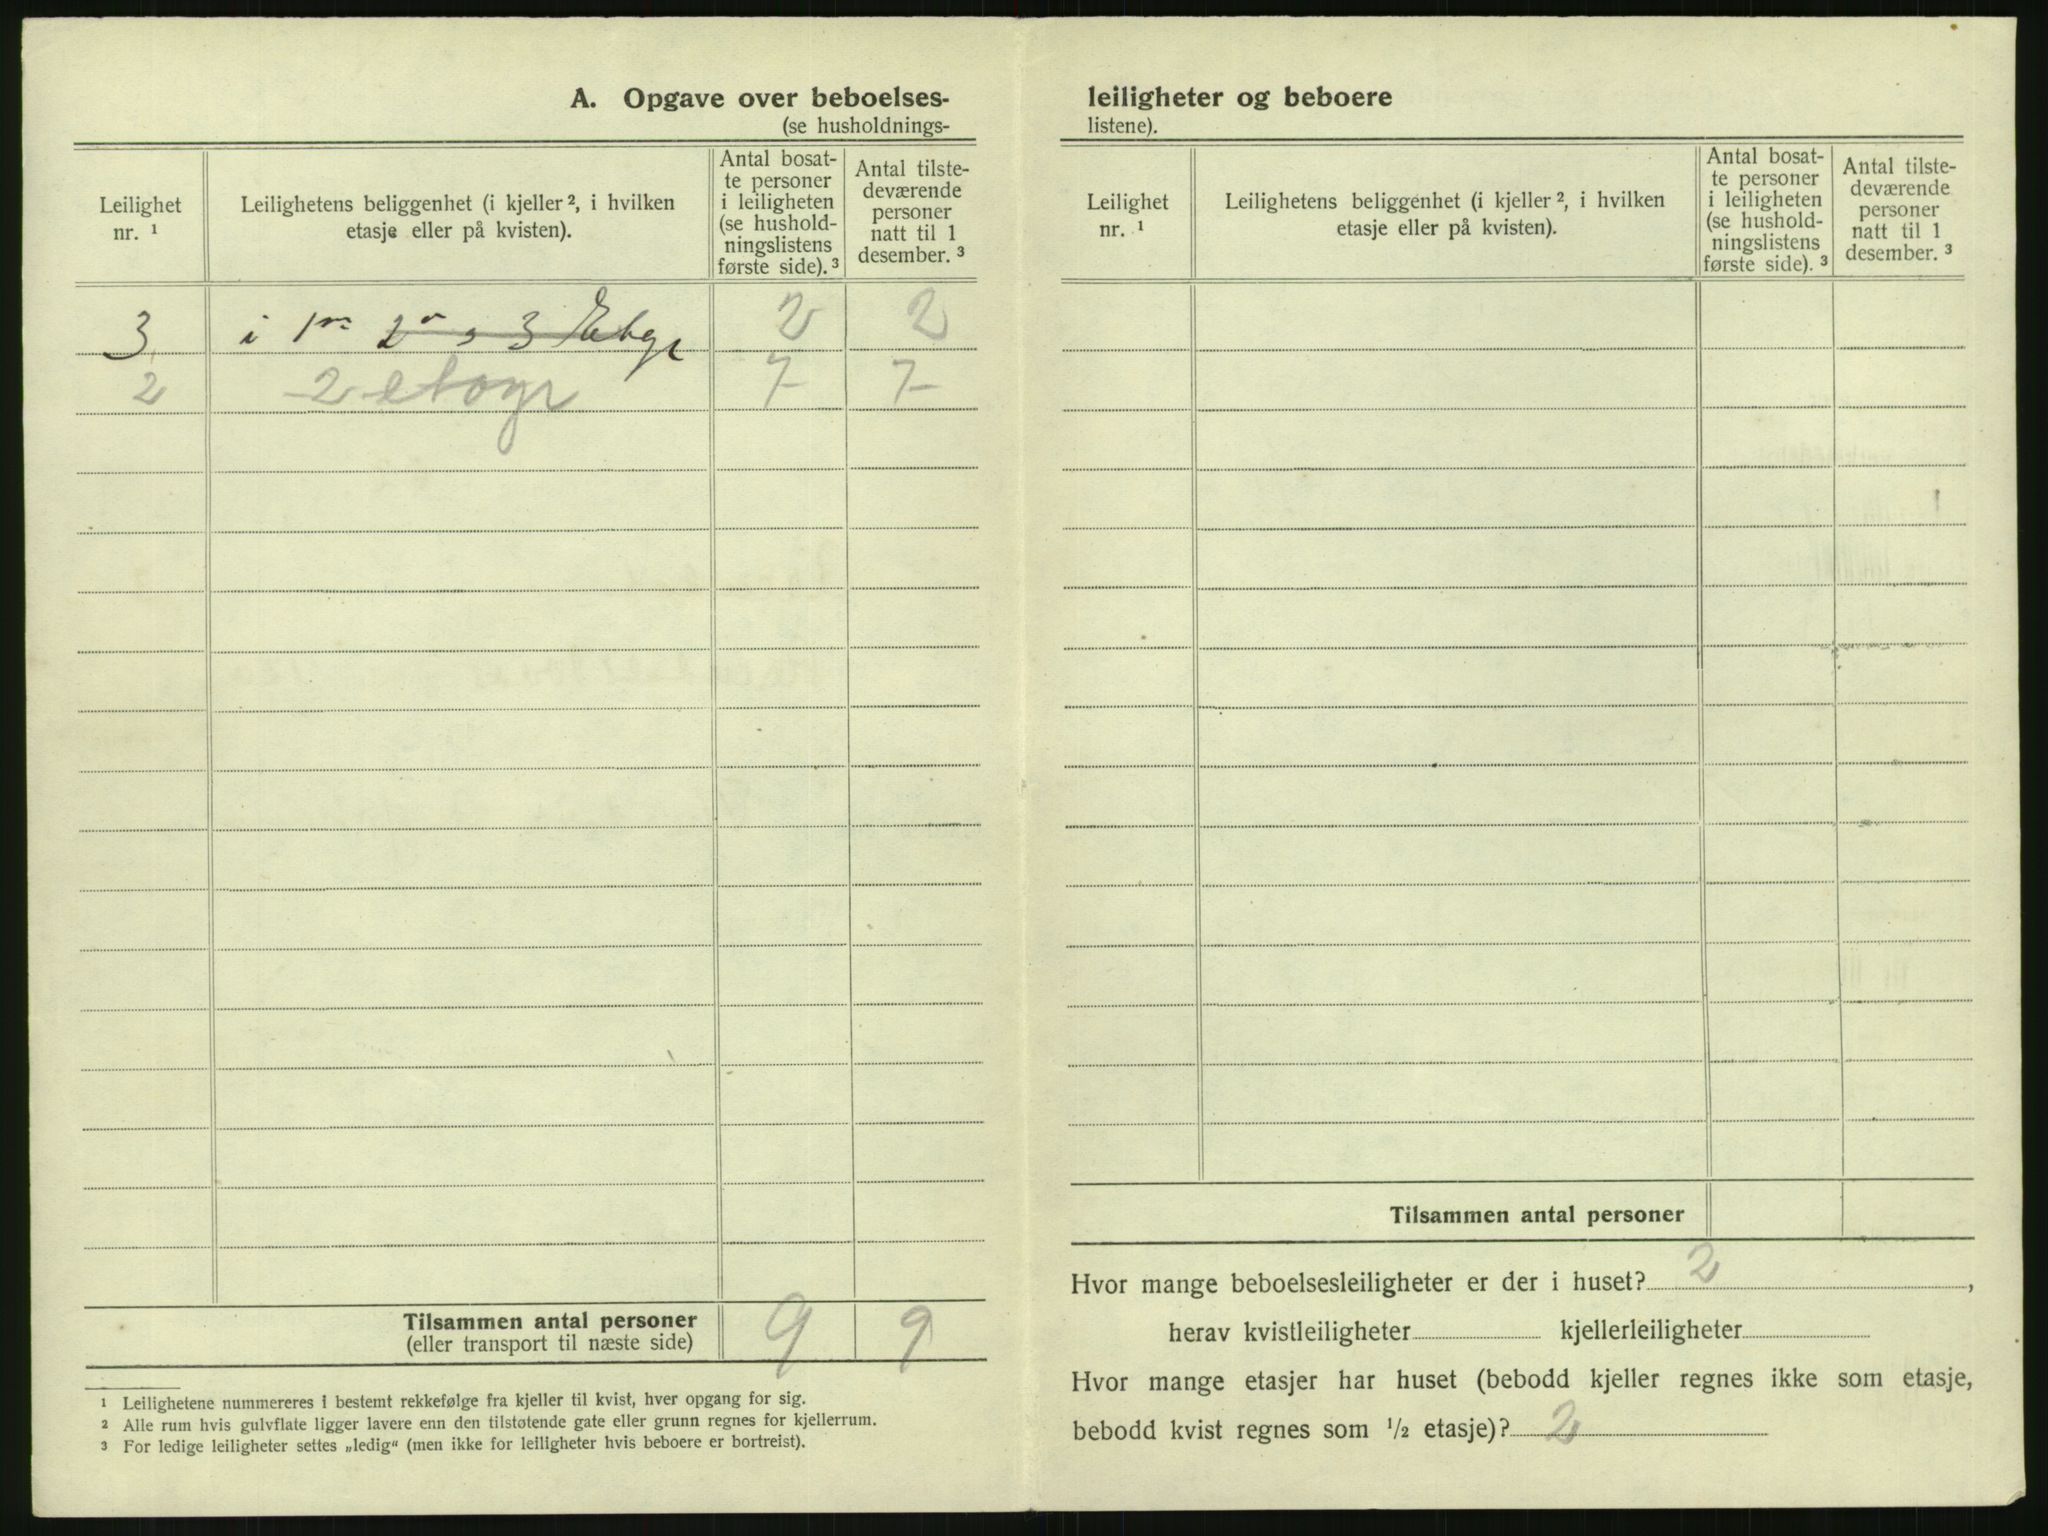 A. Opgave over beboelses-
(se husholdnings-
Leilighet
nr. ¹
Leilighetens beliggenhet (i kjeller ², i hvilken
etasje eller på kvisten).
Antal bosat-
te personer
i leiligheten
(se hushold-
ningslistens
første side). ³
Antal tilste-
deværende
personer
natt til 1
desember. ³
3 i 1ste 2n 3 Etage 2 2
2 2 etage 7 7
Tilsammen antal personer 9 9
(eller transport til næste side)
¹ Leilighetene nummereres i bestemt rekkefølge fra kjeller til kvist, hver opgang for sig.
² Alle rum hvis gulvflate ligger lavere enn den tilstøtende gate eller grunn regnes for kjellerrum.
³ For ledige leiligheter settes „ledig“ (men ikke for leiligheter hvis beboere er bortreist).
leiligheter og beboere
listene).
Leilighet
nr. ¹
Leilighetens beliggenhet (i kjeller ², i hvilken
etasje eller på kvisten).
Antal bosat-
te personer
i leiligheten
(se hushold-
ningslistens
første side). ³
Antal tilste-
deværende
personer
natt til 1
desember. ³
Tilsammen antal personer
Hvor mange beboelsesleiligheter er der i huset? 2,
herav kvistleiligheter kjellerleiligheter
Hvor mange etasjer har huset (bebodd kjeller regnes ikke som etasje,
bebodd kvist regnes som ½ etasje)? 2